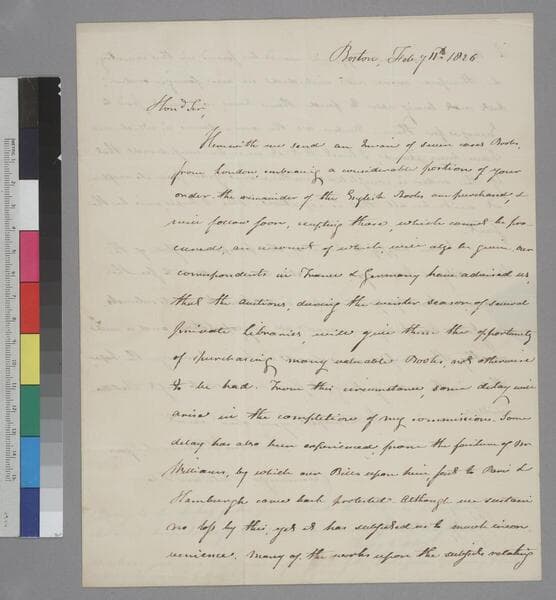 Boston, Feby 11th 1826
Hond Sir,
Herewith we send an Invoice of seven cases Books,
from London, embracing a considerable portion of your
order. the remainder of the English Books are purchased, &
will follow soon, excepting those, which cannot be pro-
cured, an account of which, will also be given. our
correspondents in France & Germany have advised us,
that the auctions, during the winter season, of several
private Libraries, will give them the opportunity
of purchasing many valuable Books, not otherwise
to be had. From this circumstance, some delay will
arise in the completion of my commissions. Some
delay has also been experienced, from the failure of Mr
Williams, by which our Bills upon him, sent to Paris &
Hamburgh came back protested. Although we sustain
no loss by this, yet it has subjected us to much incon
venience. Many of the works upon the subjects relating